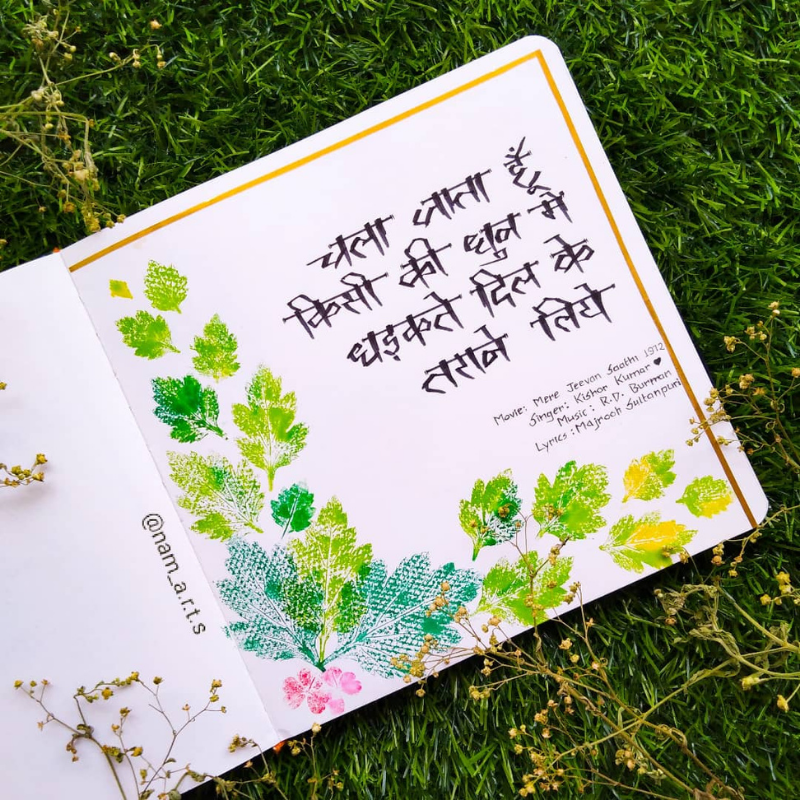 चला जाता हूँ
किसी की धुन में
धड़कते दिल के
तराने लिये
Movie: Mere Jeevan Saathi 1972
Singer: Kishor Kumar ♥
Music: R.D. Burman
Lyrics: Majrooh Sultanpuri
@nam_a.r.t.s